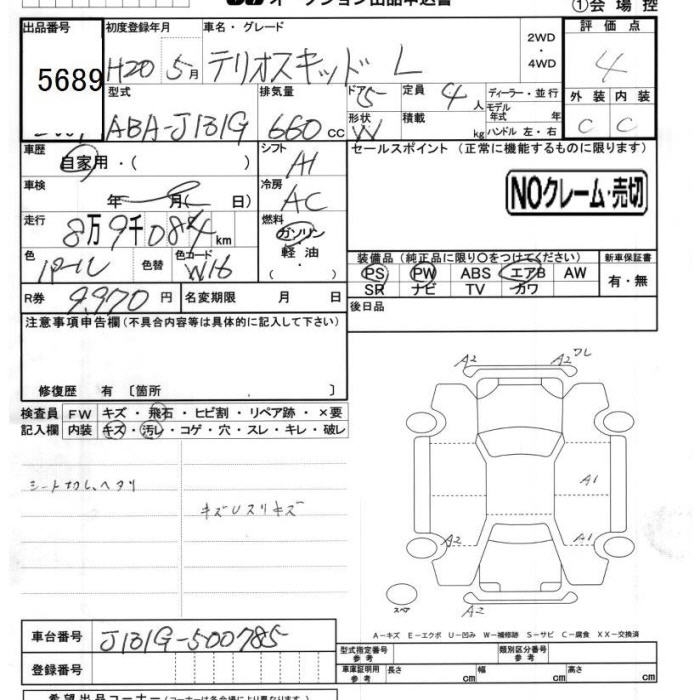 オークション出品申込書 ①会場控
出品番号 初度登録年月 車名・グレード 2WD・4WD 評価点
5689 H20 5月 テリオスキッド L 4
型式 排気量 ドア 定員 ディーラー・並行 外装 内装
ABA-J131G 660cc 5 4人 モデル年式 年 C C
形状 W 積載 kg ハンドル 左・右
車歴 自家用・( ) シフト AT セールスポイント (正常に機能するものに限ります)
車検 年 月( 日) 冷房 AC NOクレーム・売切
走行 8万9千084km 燃料 ガソリン
軽油
( )
色 パール 色替 色コード W16 装備品 (純正品に限り〇をつけてください) 新車保証書
PS PW ABS エアB AW 有・無
SR ナビ TV カワ
R券 9,970円 名変期限 月 日 後日品
注意事項申告欄(不具合内容等は具体的に記入して下さい)
修復歴 有 〔箇所 〕
検査員 FW キズ・飛石・ヒビ割・リペア跡・×要
記入欄 内装 キズ・汚レ・コゲ・穴・スレ・キレ・破レ
A2 A2 ワレ
A1
シート切レ、ヘタリ
キズUスリキズ
A2 A1
スペア A2
A-キズ E-エクボ U-凹み W-補修跡 S-サビ C-腐食 XX-交換済
車台番号 J131G-500785
型式指定番号 参考 類別区分番号 参考
登録番号 車庫証明用 参考 長さ cm 幅 cm 高さ cm
希望出品コーナー(コーナーは各会場により異なります。)